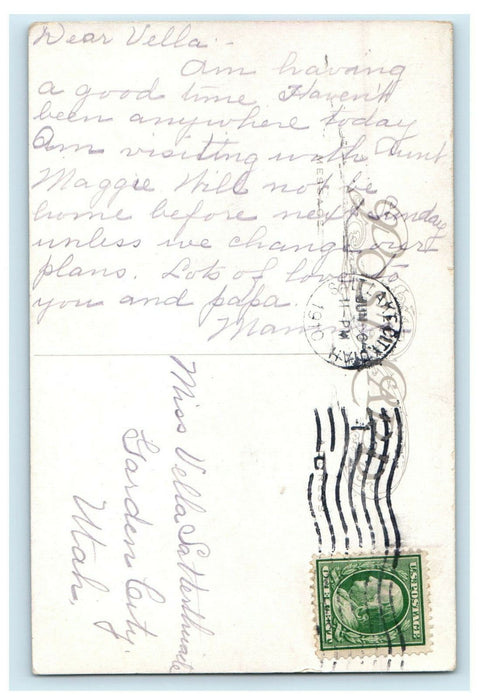 Dear Vella -
Am having
a good time. Haven't
been anywhere today
Am visiting with Aunt
Maggie Will not be
home before next Sunday
unless we change our
plans. Lots of love to
you and papa.
Mamma
Miss Vella Satterthwaite
Garden City.
Utah.
POST CARD
MESSAGE
SALT LAKE CITY, UTAH
JUN 6
11-PM
1910
U.S. POSTAGE
ONE CENT